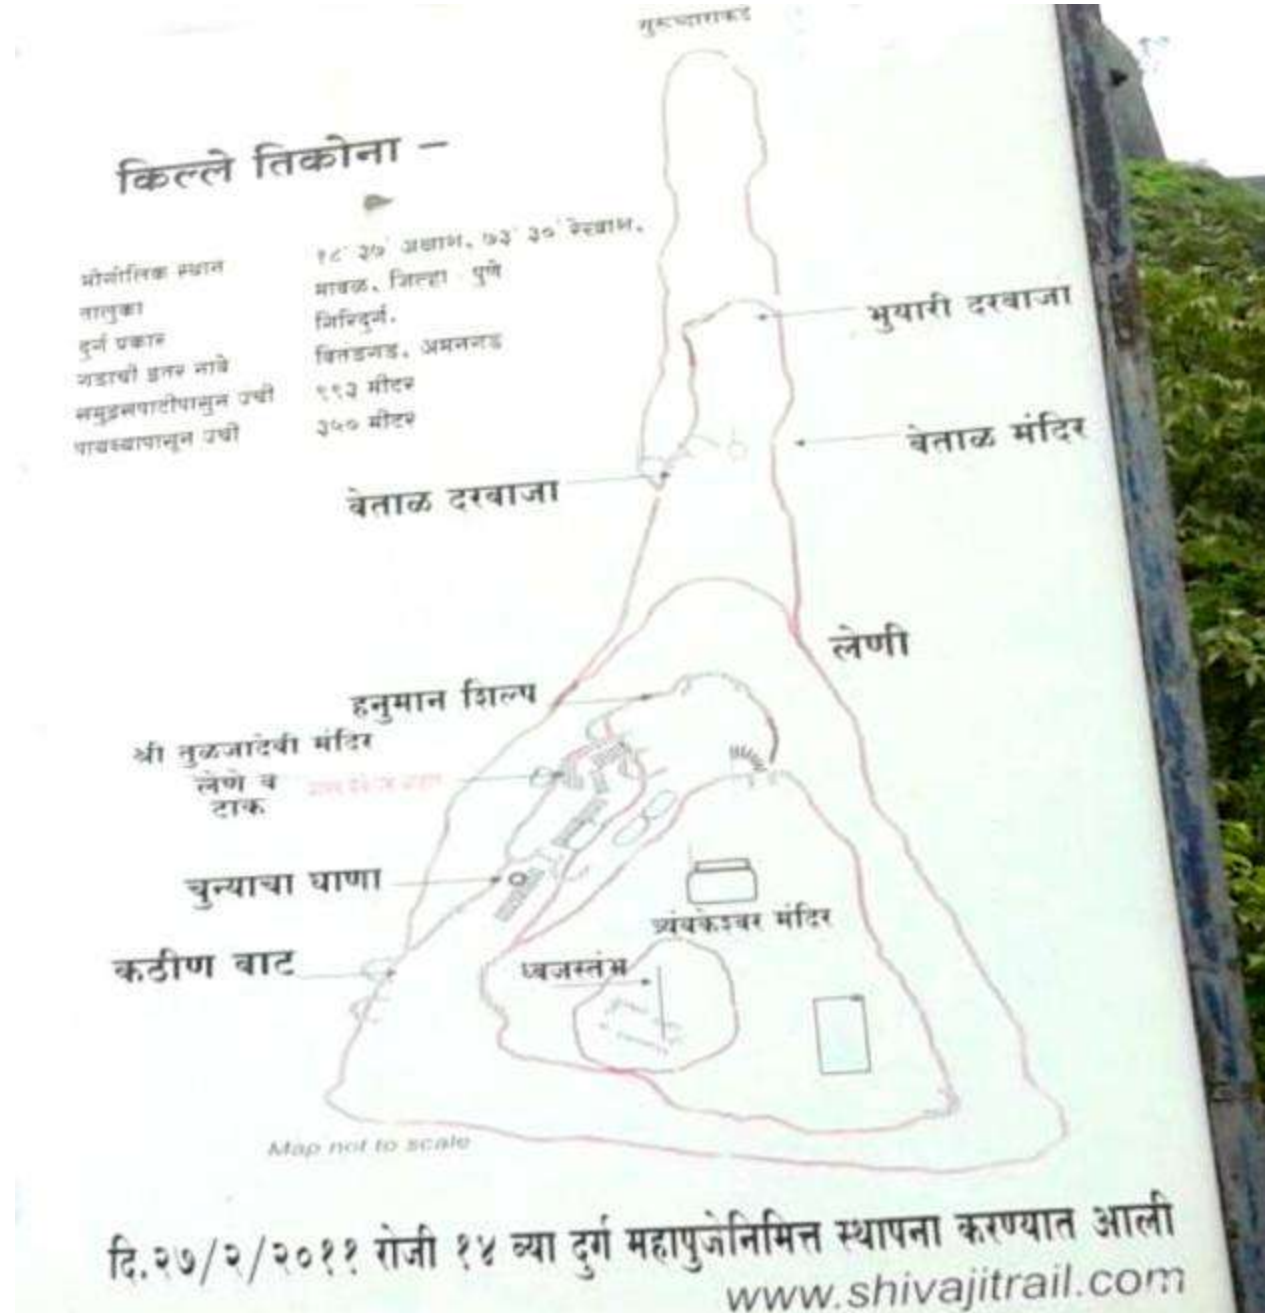 किल्ले तिकोना –
भौगोलिक स्थान १८° ३७' अक्षांश, ७३° ३०' रेखांश.
तालुका मावळ, जिल्हा पुणे
दुर्ग प्रकार गिरिदुर्ग.
गडाची इतर नावे वितंडगड, अमनगड
समुद्रसपाटीपासून उंची ९९३ मीटर
पायथ्यापासून उंची ३५० मीटर
भुयारी दरवाजा
वेताळ मंदिर
वेताळ दरवाजा
लेणी
हनुमान शिल्प
श्री तुळजादेवी मंदिर
लेणे व
टाक
चुन्याचा घाणा
त्र्यंबकेश्वर मंदिर
कठीण वाट
ध्वजस्तंभ
Map not to scale
दि.२७/२/२०११ रोजी १४ व्या दुर्ग महापुजेनिमित्त स्थापना करण्यात आली
www.shivajitrail.com